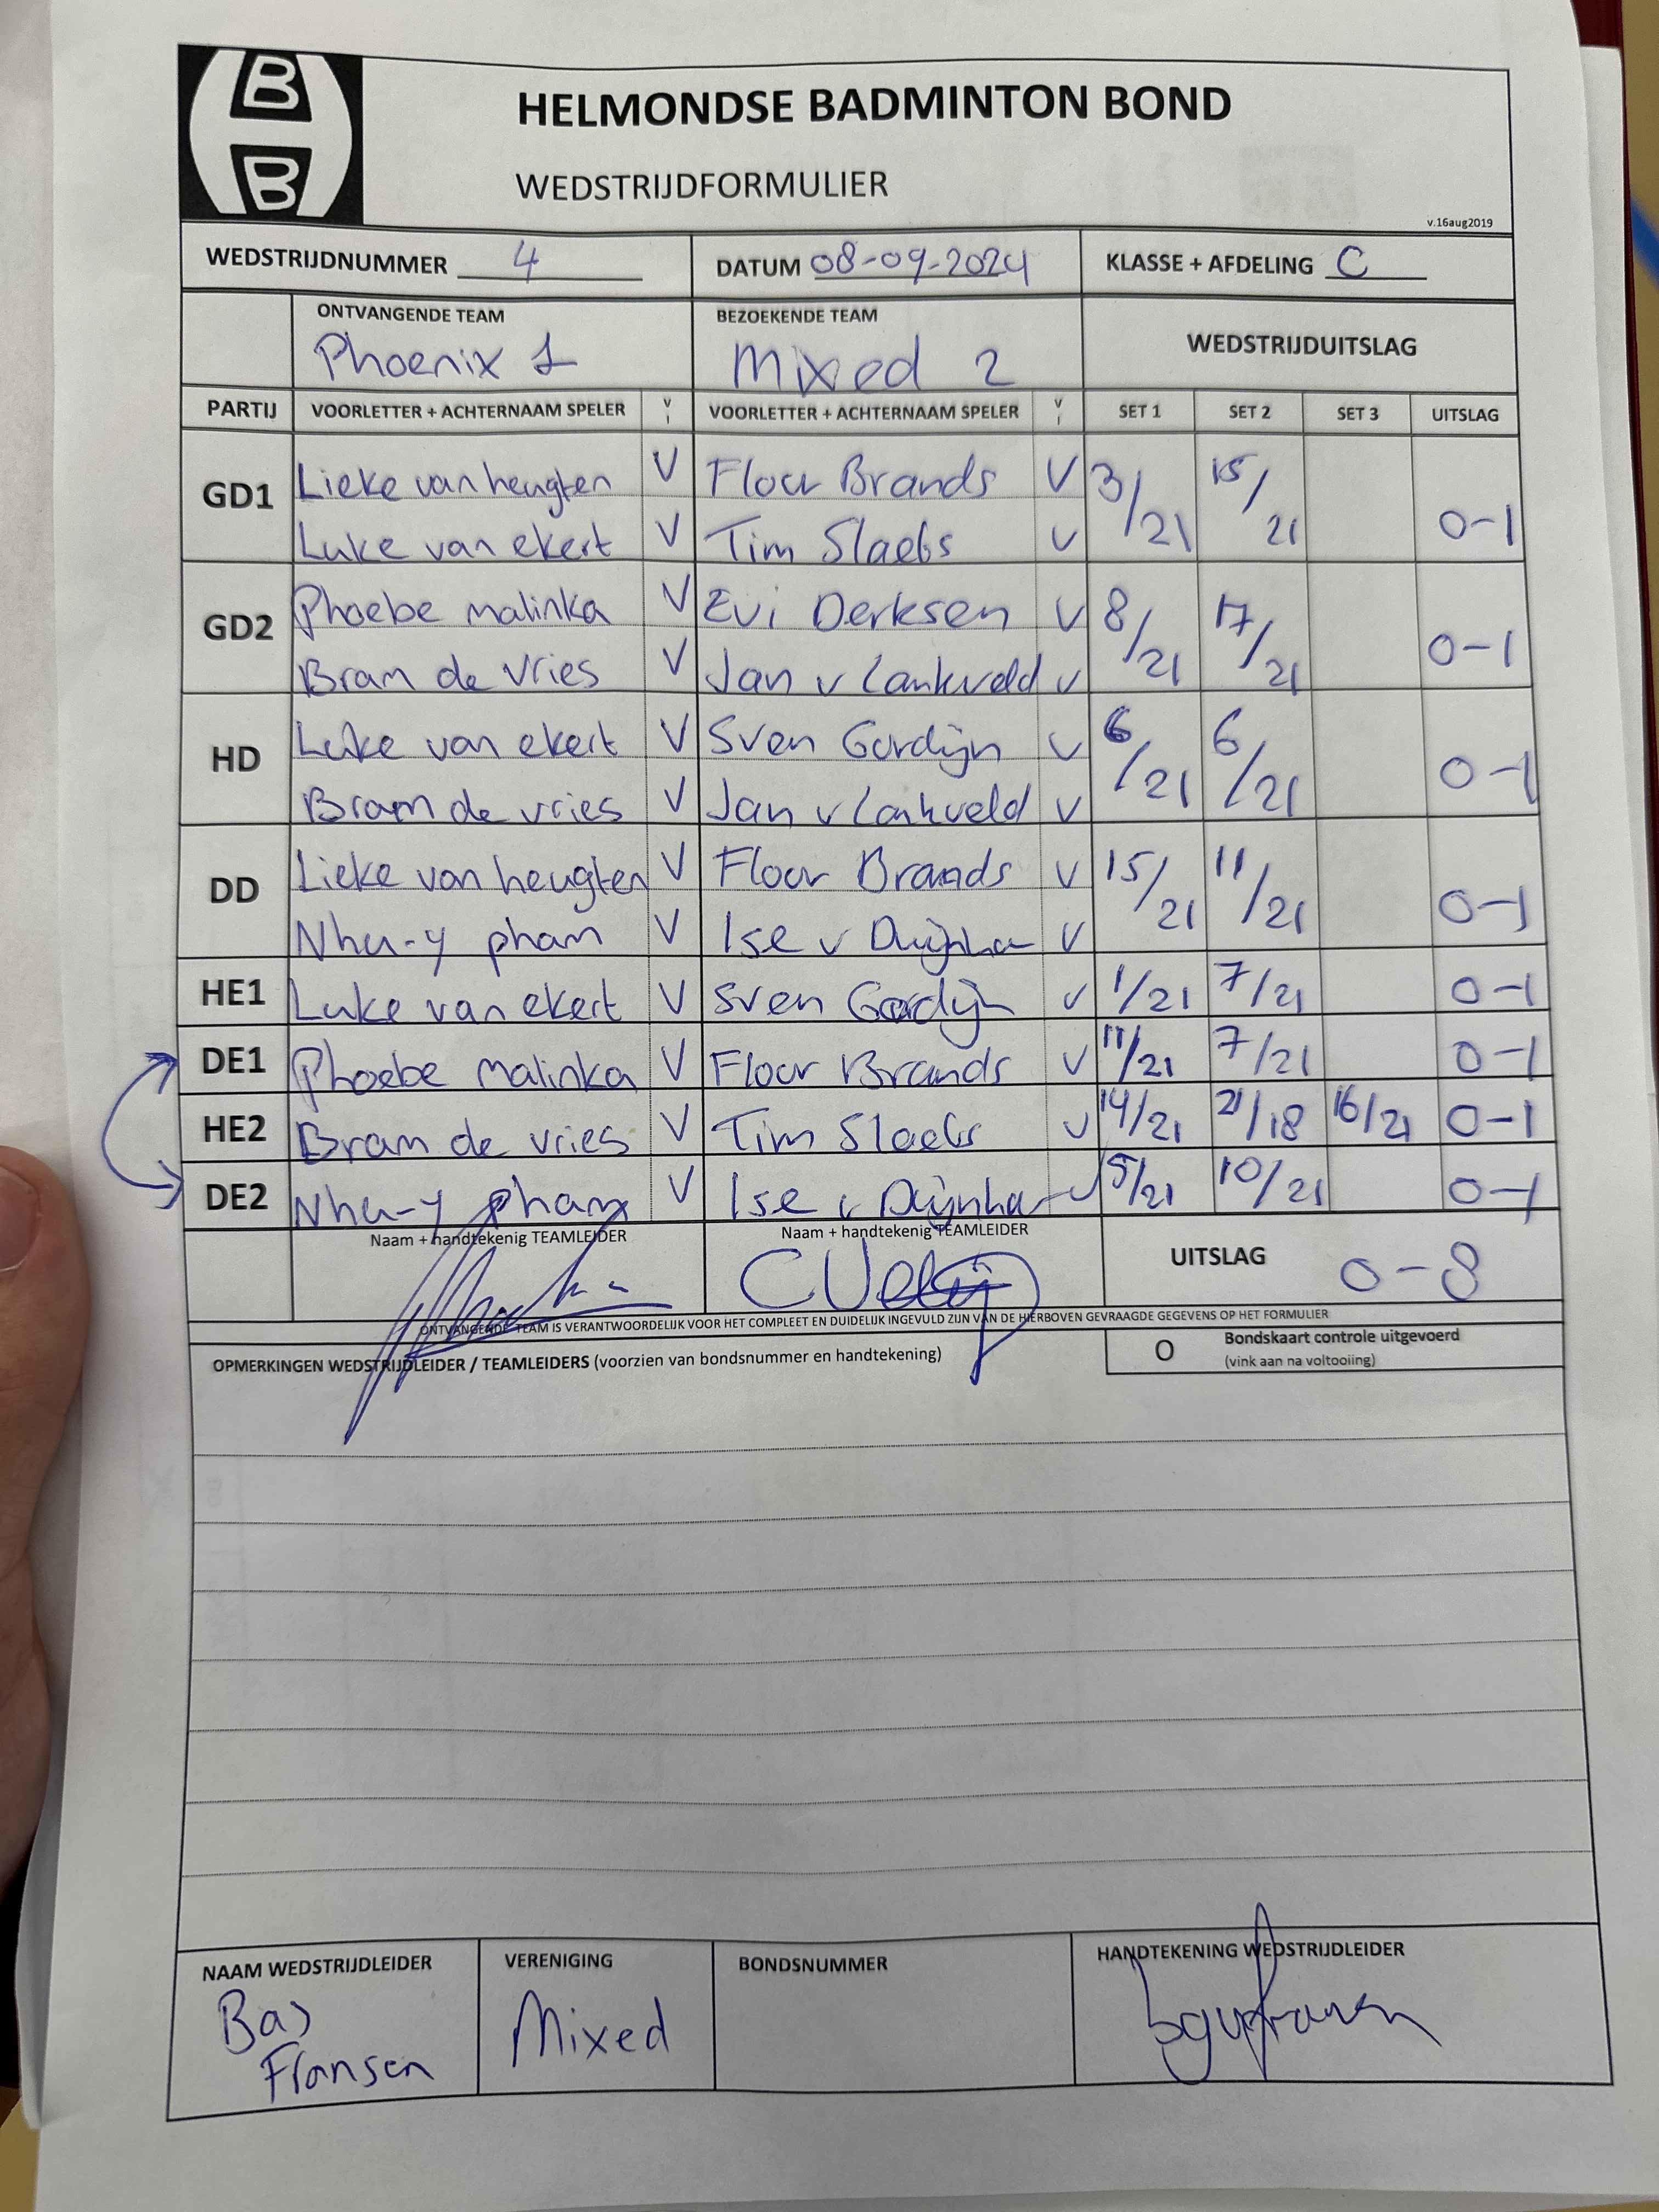 B
B
HELMONDSE BADMINTON BOND
WEDSTRIJDFORMULIER
v.16aug2019
WEDSTRIJDNUMMER 4 DATUM 08-09-2024 KLASSE + AFDELING C
ONTVANGENDE TEAM BEZOEKENDE TEAM WEDSTRIJDUITSLAG
Phoenix 1 Mixed 2
PARTIJ VOORLETTER + ACHTERNAAM SPELER V I VOORLETTER + ACHTERNAAM SPELER V I SET 1 SET 2 SET 3 UITSLAG
GD1 Lieke van heugten V Floor Brands V 3/21 15/21 0-1
Luke van ekert V Tim Slaets V
GD2 Phoebe malinka V Evi Derksen V 8/21 17/21 0-1
Bram de vries V Jan v Lankveld v
HD Luke van ekert V Sven Gordijn V 6/21 6/21 0-1
Bram de vries V Jan v Lankveld V
DD Lieke van heugten V Floor Brands V 15/21 11/21 0-1
Nhu-y pham V Ise v V
HE1 Luke van ekert V Sven Gordijn v 1/21 7/21 0-1
DE1 Phoebe malinka V Floor Brands V 11/21 7/21 0-1
HE2 Bram de vries V Tim Slaets V 14/21 21/18 16/21 0-1
DE2 Nhu-y pham V Ise v V 5/21 10/21 0-1
Naam + handtekenig TEAMLEIDER Naam + handtekenig TEAMLEIDER UITSLAG 0-8
ONTVANGENDE TEAM IS VERANTWOORDELIJK VOOR HET COMPLEET EN DUIDELIJK INGEVULD ZIJN VAN DE HIERBOVEN GEVRAAGDE GEGEVENS OP HET FORMULIER
OPMERKINGEN WEDSTRIJDLEIDER / TEAMLEIDERS (voorzien van bondsnummer en handtekening)
O Bondskaart controle uitgevoerd
(vink aan na voltooiing)
NAAM WEDSTRIJDLEIDER VERENIGING BONDSNUMMER HANDTEKENING WEDSTRIJDLEIDER
Bas Mixed
Fransen